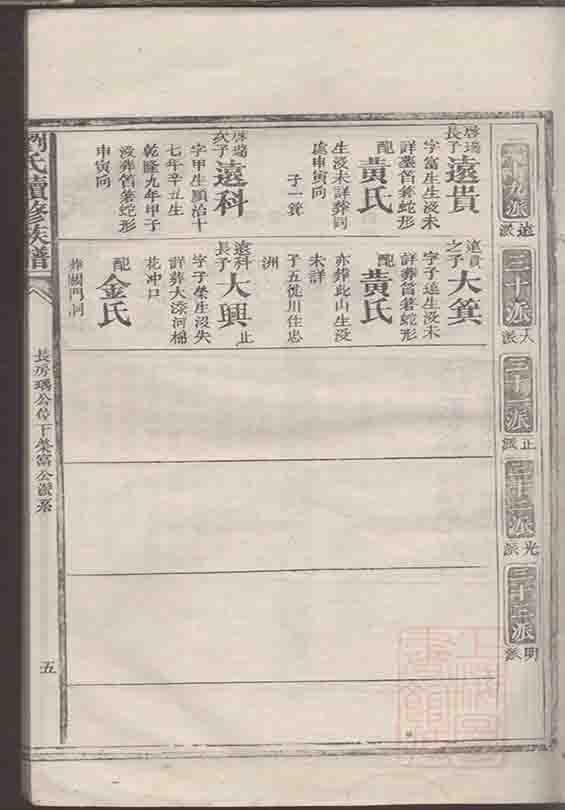 二十九派
遠派
三十派
大派
三十一派
正派
三十二派
光派
三十三派
明派
啓瑞
長子
遠貴
字富生生沒未
詳塟笛箬蛇形
配
黃氏
生沒未詳葬同
處申寅向
子一箕
啓瑞
次子
遠科
字甲生順治十
七年辛丑生
乾隆九年甲子
沒葬笛箬蛇形
申寅向
遠貴
之子
大箕
字子遠生沒未
詳葬笛箬蛇形
配
黃氏
亦葬此山生沒
未詳
子五徙川住忠
洲
遠科
長子
大興
止
字子榮生沒失
詳葬大深河楊
花冲口
配
金氏
葬關門洞
氏續修族譜
長房瑀公位下榮富公派系
五